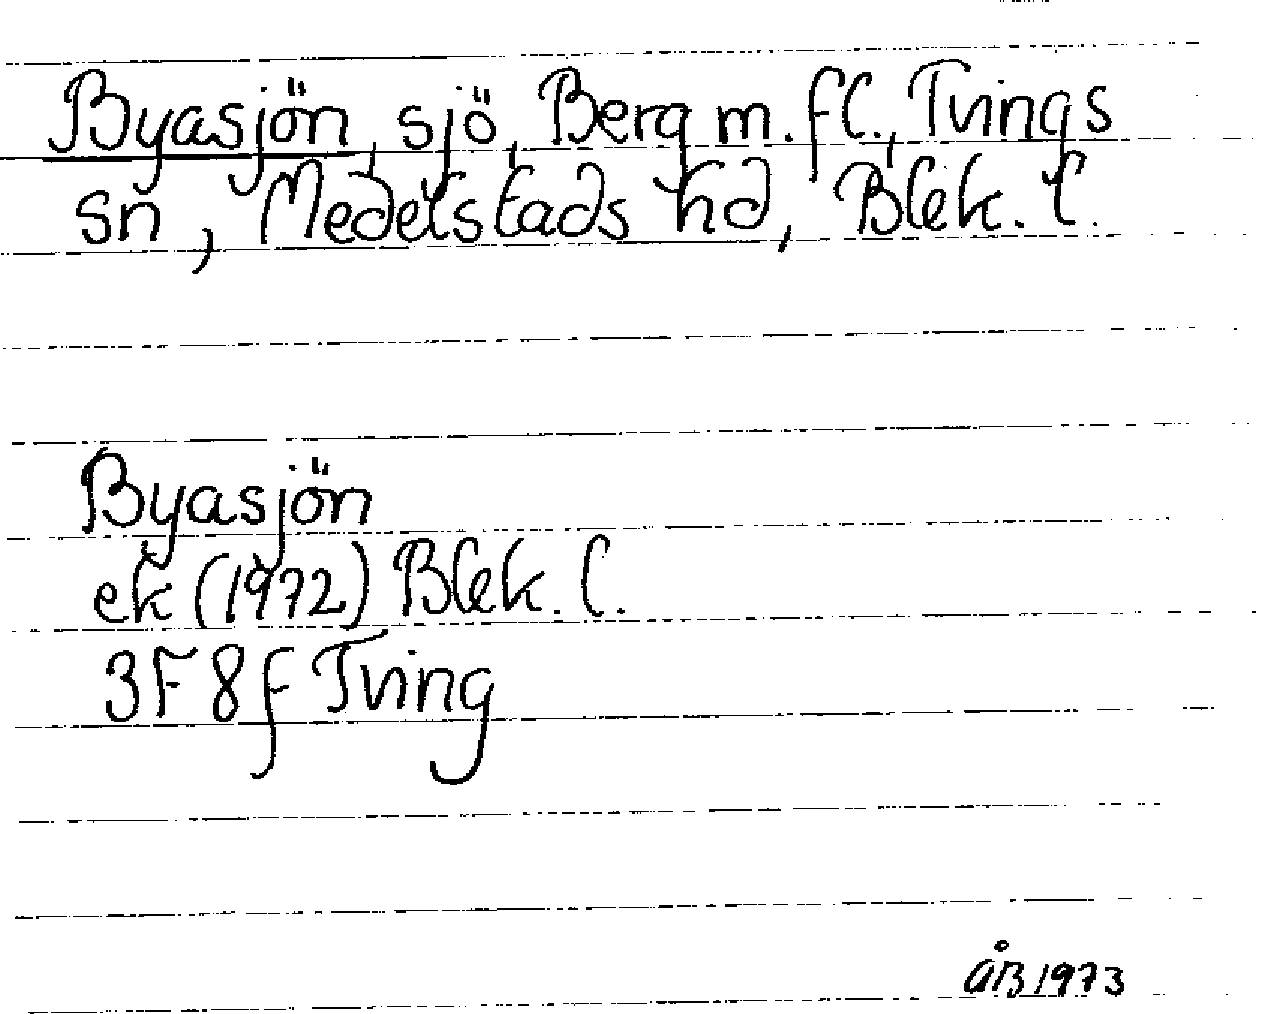 Byasjön, sjö, Berg m. fl., Tvings
sn, Medelstads hd, Blek. l.
Byasjön
ek (1972) Blek. l.
3F 8f Tving
ÅB 1973